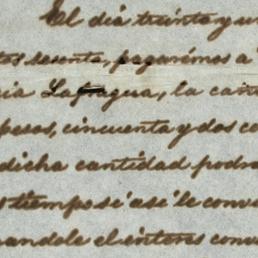 El día treinta y un
tos sesenta, pagarémos a
ia Lafragua, la can
pesos, cincuenta y dos ce
dicha cantidad podra
tiempo si asi le conv
andole el interes conv